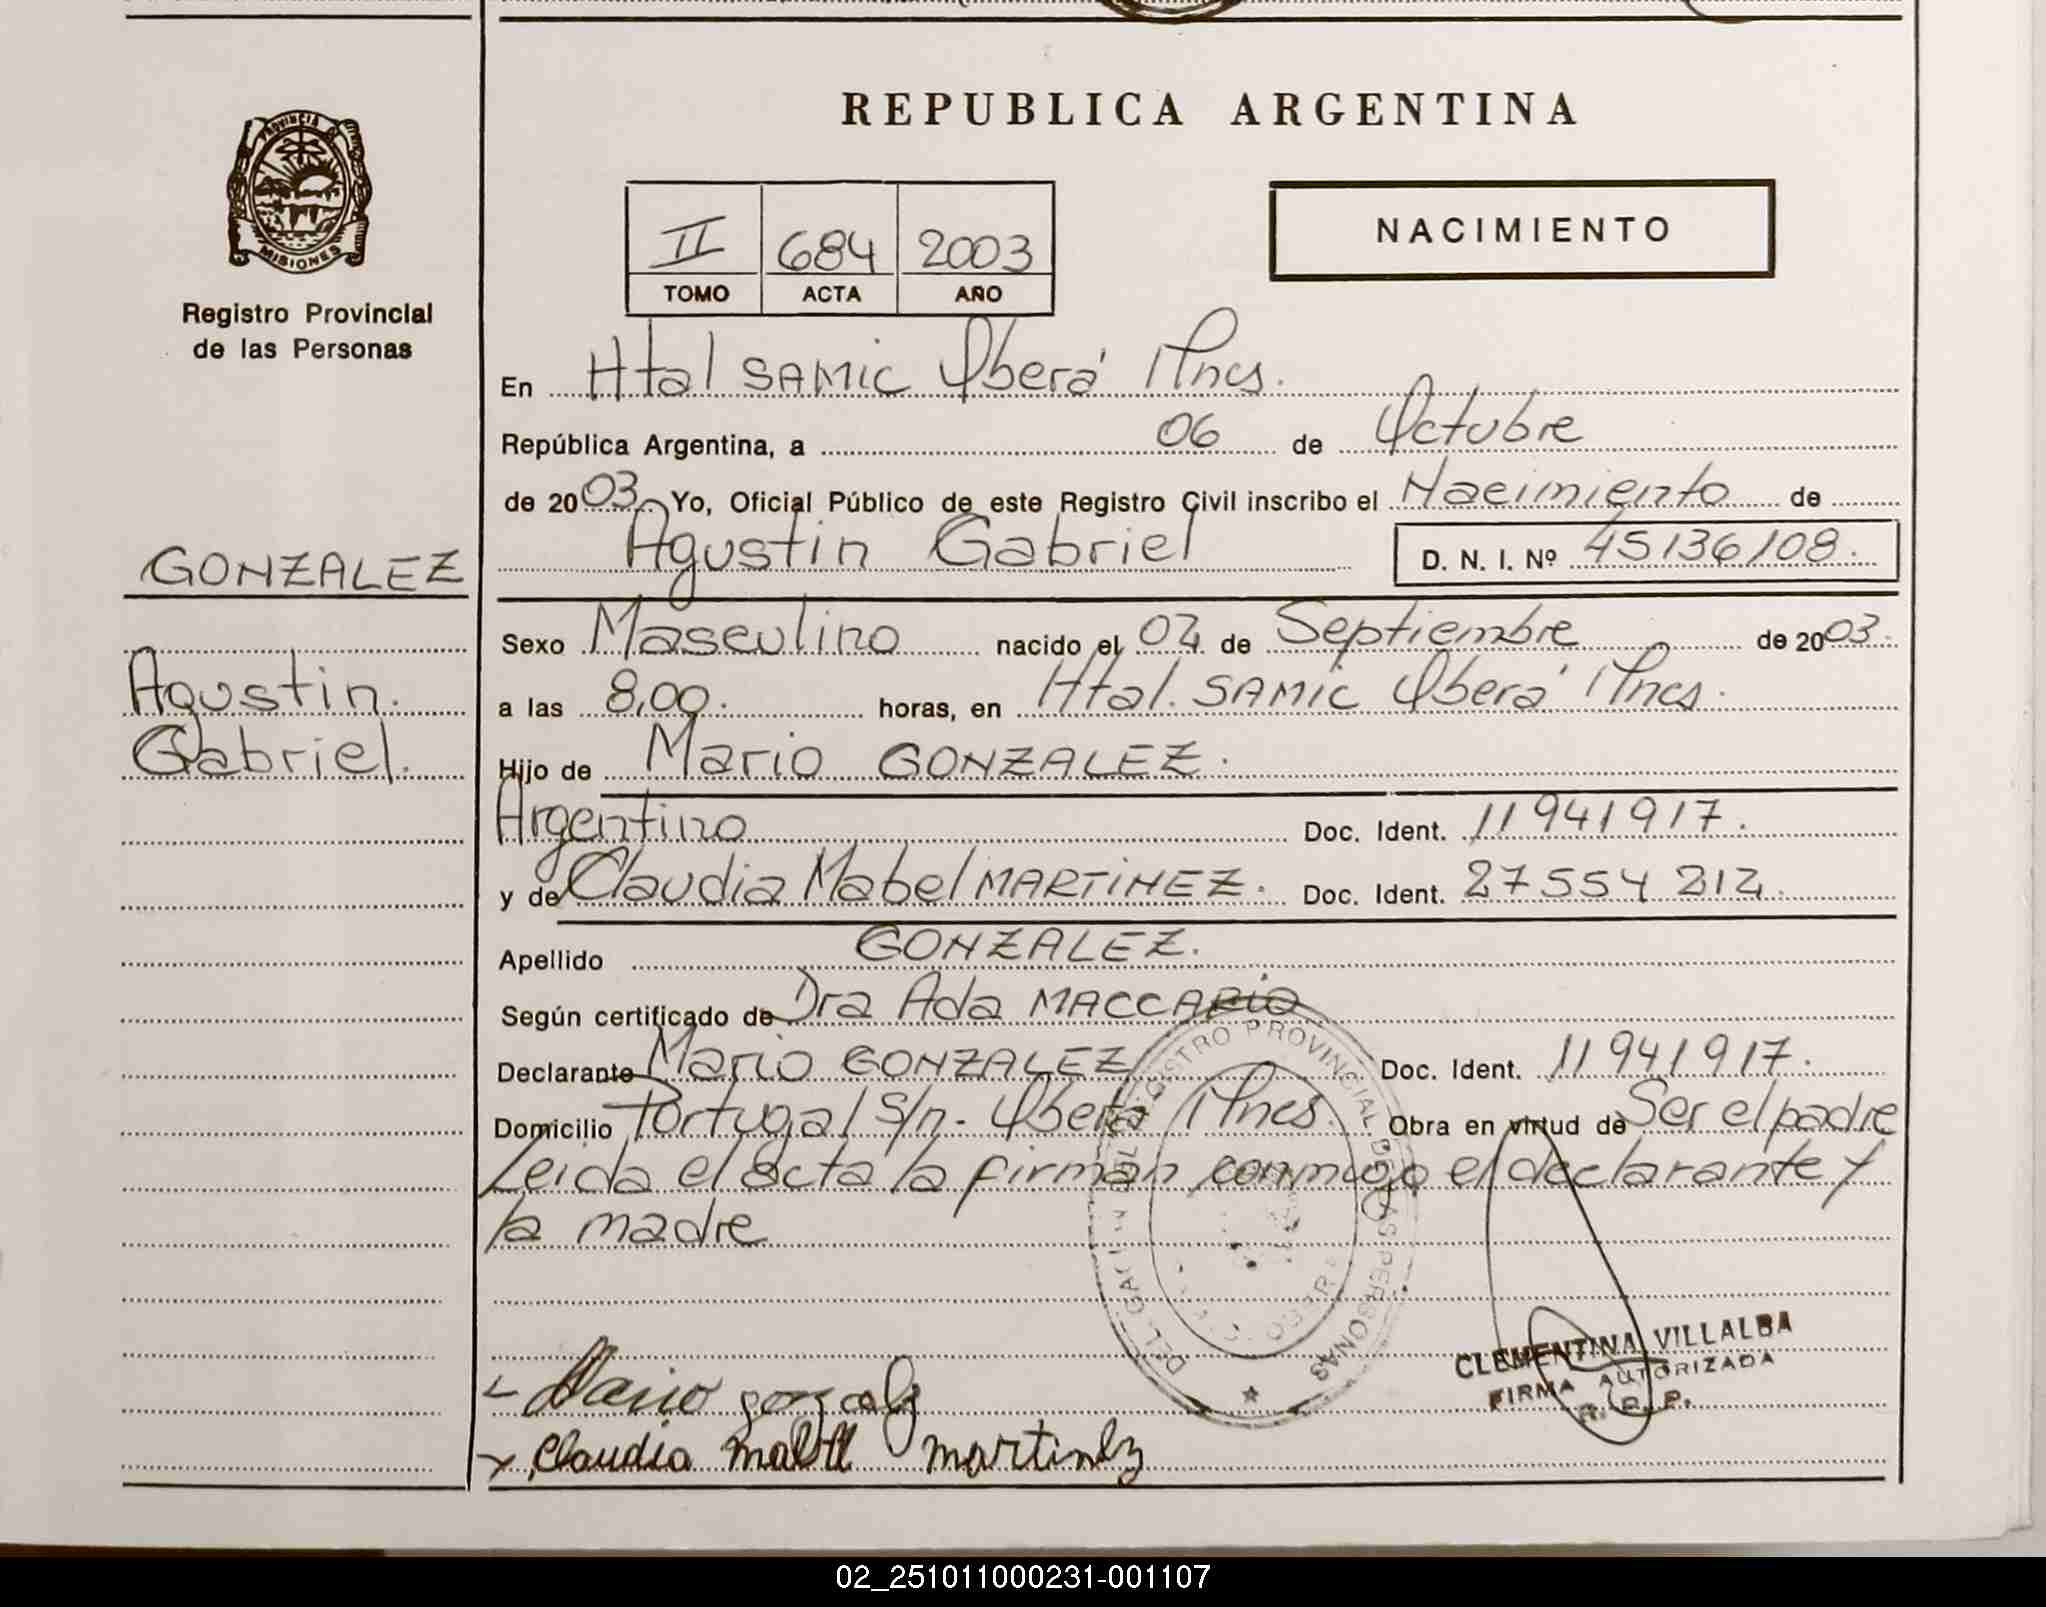 REPUBLICA ARGENTINA
PROVINCIA DE
MISIONES
Registro Provincial
de las Personas
NACIMIENTO
II 684 2003
TOMO ACTA AÑO
En Htal SAMIC Oberá Mnes.
República Argentina, a 06 de Octubre
de 2003 Yo, Oficial Público de este Registro Civil inscribo el Nacimiento de
Agustin Gabriel D. N. I. Nº 45136108.
GONZALEZ
Agustin.
Gabriel.
Sexo Masculino nacido el 04 de Septiembre de 2003.
a las 8,00. horas, en Htal. SAMIC Oberá Mnes.
Hijo de Mario GONZALEZ.
Argentino Doc. Ident. 11941917.
y de Claudia Mabel MARTINEZ. Doc. Ident. 27554212.
Apellido GONZALEZ.
Según certificado de Dra Ada MACCARIO
Declarante Mario GONZALEZ Doc. Ident. 11941917.
Domicilio Portugal S/n. Oberá Mnes. Obra en virtud de Ser el padre
Leida el acta la firman conmigo el declarante y
la madre
REGISTRO PROVINCIAL DE LAS PERSONAS
CLEMENTINA VILLALBA
FIRMA AUTORIZADA
R. P. P.
Mario gonzalz
Claudia mabel martinez
02_251011000231-001107